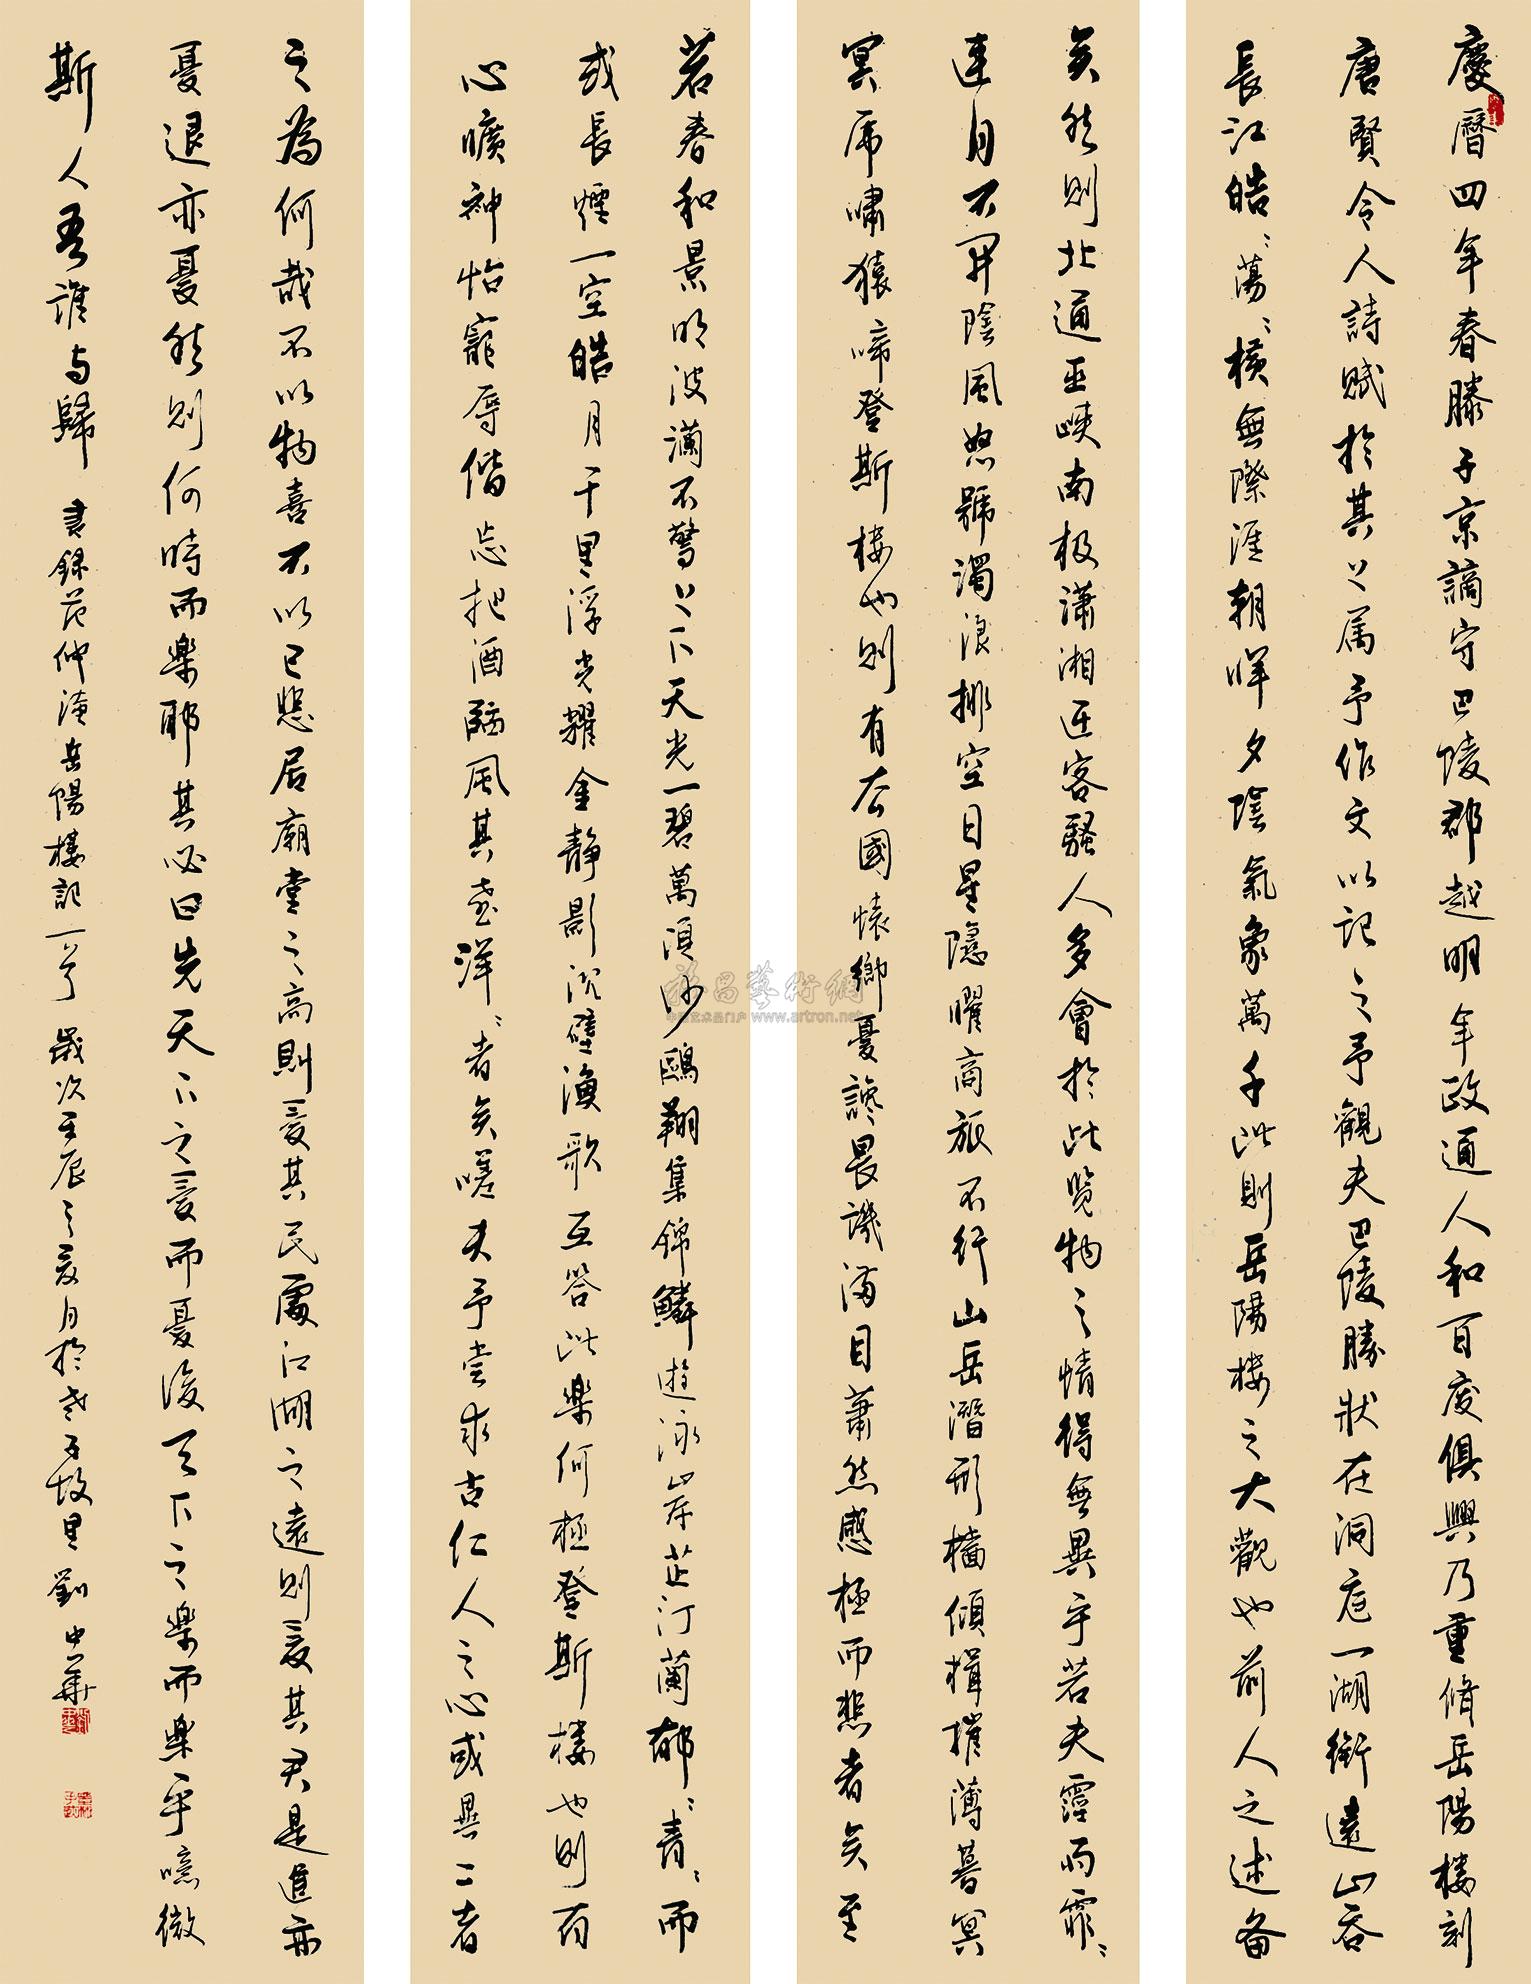 慶曆四年春滕子京謫守巴陵郡越明年政通人和百废俱興乃重脩岳陽楼刻
唐賢令人詩賦於其上属予作文以記之予觀夫巴陵勝狀在洞庭一湖銜遠山吞
長江皓〻蕩〻橫無際涯朝暉夕陰氣象萬千此則岳陽楼之大觀也前人之述备
矣然則北通巫峽南极瀟湘迁客騷人多會於此览物之情得無異乎若夫霪雨霏〻
連月不開陰風怒號濁浪排空日星隱曜商旅不行山岳潛形檣傾楫摧薄暮冥
冥虎嘯猿啼登斯楼也則有去國懷鄉憂讒畏譏滿目蕭然感極而悲者矣至
若春和景明波瀾不驚上下天光一碧萬頃沙鷗翔集錦鱗遊泳岸芷汀蘭郁〻青〻而
或長煙一空皓月千里浮光耀金静影沉璧漁歌互答此樂何極登斯楼也則有
心曠神怡寵辱偕忘把酒臨風其喜洋〻者矣嗟夫予嘗求古仁人之心或異二者
之為何哉不以物喜不以己悲居廟堂之高則憂其民處江湖之遠則憂其君是進亦
憂退亦憂然則何時而樂耶其必曰先天下之憂而憂後天下之樂而樂乎噫微
斯人吾誰与歸 書錄范仲淹岳陽樓記一 歲次壬辰之夏月於 里劉中華
www.artron.net